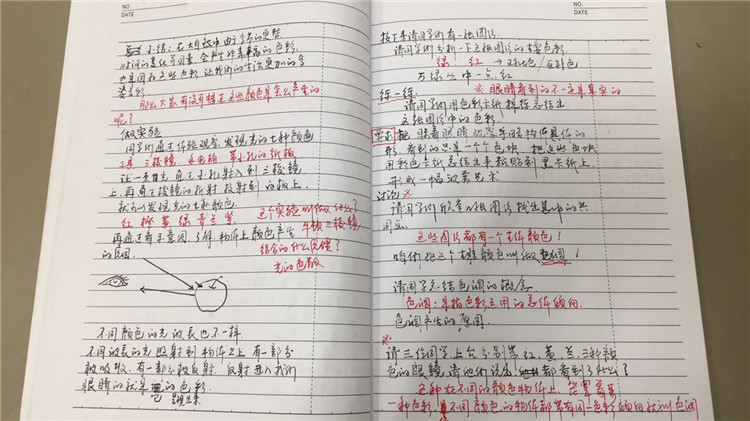 NO.
DATE
小结：在大自然中由于季节的更替
时间的变化等因素 会产生非常丰富的色彩，
也是因为这些色彩 让我们的生活更加的多
姿多彩
那么大家有没有想过这些颜色是怎么产生的
呢？
做实验
同学们通过仔细观察，发现光的七种颜色
工具 三棱镜 手电筒 带小孔的纸板
让一束白光 通过小孔射入到三棱镜
上，再通过棱镜的折射 投射到白板上，
就能发现光的七种颜色
红 橙 黄 绿 青 兰 紫
这个实验叫做什么？
再通过看示意图，了解物体上颜色产生
的原因
牛顿三棱镜
光的色散
不同颜色的光波长也不一样
不同波长的光照射到物体之上 有一部分
被吸收，有一部分被反射，反射进入我们
眼睛的就是 的色彩
NO.
DATE
接下来请同学们看一张图片
请同学们分析一下这张图片的主要色彩
绿 红 → 对比色/互补色
万绿丛中一点红
练一练
※ 眼睛看到的不一定是真实的
请同学们用色彩卡纸提炼总结出
这张图片中的色彩
要求 眯着眼睛 忽略物体具体的
形，看到的只是一个个色块，把这些色块
用彩色卡纸总结出来粘贴到黑卡纸上
形成一幅
讨论 ※
请同学们所拿的几张图片找出其中的共
同点
这些图片都有一个主体颜色！
咱们把这个主要颜色叫做 色调！
请同学总结色调的概念
色调：是指色彩运用的总体倾向
色调产生的原因
※
请三位同学上台分别戴红，黄，兰，三种颜
色的眼镜，请他们说出 都看到了什么？
这种在不同的颜色物体上，笼罩着某
一种色彩，是不同颜色的物体都带有同一色彩倾向就叫色调